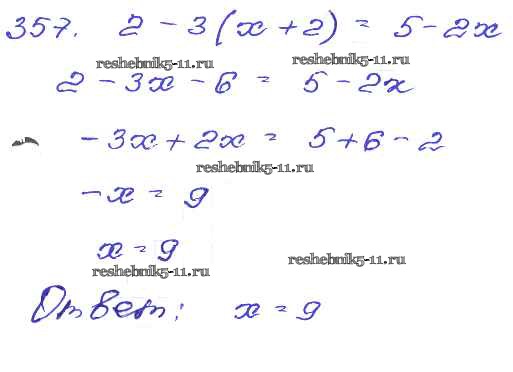 357. 2 - 3(x + 2) = 5 - 2x
reshebnik5-11.ru reshebnik5-11.ru
2 - 3x - 6 = 5 - 2x
- 3x + 2x = 5 + 6 - 2
reshebnik5-11.ru
- x = 9
x = 9
reshebnik5-11.ru reshebnik5-11.ru
Ответ: x = 9